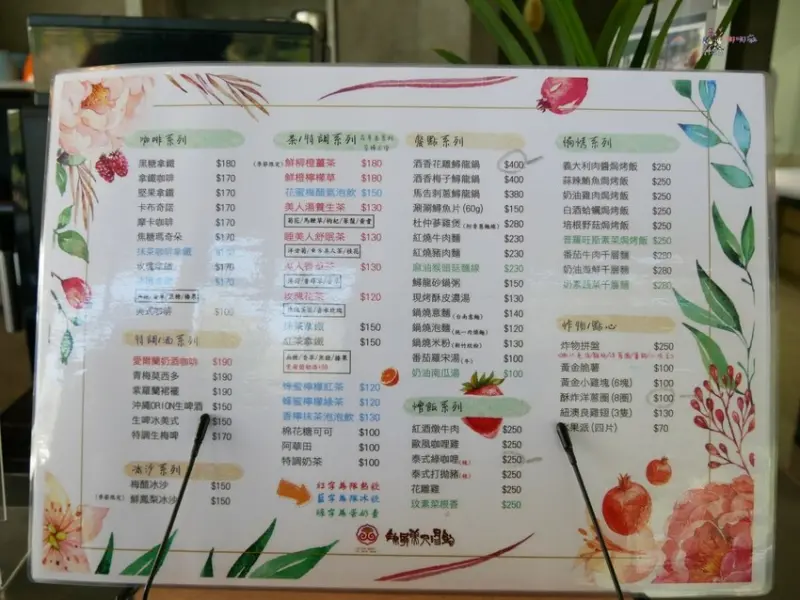 咖啡系列
黑糖拿鐵 $180
拿鐵咖啡 $170
堅果拿鐵 $170
卡布奇諾 $170
摩卡咖啡 $170
焦糖瑪奇朵 $170
抹茶咖啡拿鐵
玫瑰拿鐵 $170
$170
美式咖啡 $100
特調/酒系列
愛爾蘭奶酒咖啡 $190
青梅莫西多 $190
紫羅蘭裙襬 $190
沖繩ORION生啤酒 $150
生啤冰美式 $150
特調生梅啤 $170
冰沙系列
梅醋冰沙 $150
(季節限定) 鮮鳳梨冰沙 $150
茶/特調系列
(季節限定) 鮮柳橙薑茶 $180
鮮橙檸檬草 $180
花蜜梅醋氣泡飲 $150
美人湯養生茶 $130
睡美人舒眠茶 $130
$130
玫瑰花茶 $120
抹茶拿鐵 $150
紅茶拿鐵 $150
蜂蜜檸檬紅茶 $120
蜂蜜檸檬綠茶 $120
香檸抹茶泡泡飲 $130
棉花糖可可 $100
阿華田 $100
特調奶茶 $100
紅字為限熱飲
藍字為限冰飲
綠字為蛋奶素
餐點系列
酒香花雕鱘龍鍋 $400
酒香梅子鱘龍鍋 $400
馬告剝蔥鱘龍鍋 $380
涮涮鱘魚片 (60g) $150
杜仲蔘雞煲 $230
紅燒牛肉麵 $230
紅燒豬肉麵 $230
麻油猴頭菇麵線 $230
鱘龍砂鍋粥 $150
現烤酥皮濃湯 $130
鍋燒意麵 (台南意麵) $110
鍋燒泡麵 (統一肉燥麵) $120
鍋燒米粉 (新竹炊粉) $130
番茄羅宋湯(牛) $100
奶油南瓜湯 $100
燴飯系列
紅酒燉牛肉 $250
歐風咖哩雞 $250
泰式綠咖哩(辣) $250
泰式打拋豬(辣) $250
花雕雞 $250
玟素菜根香 $250
焗烤系列
義大利肉醬焗烤飯 $250
蒜辣鮪魚焗烤飯 $250
奶油雞肉焗烤飯 $250
白酒蛤蠣焗烤飯 $250
培根野菇焗烤飯 $250
普羅旺斯素菜焗烤飯 $250
番茄牛肉千層麵 $280
奶油海鮮千層麵 $280
奶素蔬菜千層麵 $280
炸物/點心
炸物拼盤 $250
黃金脆薯 $100
黃金小雞塊 (6塊) $100
酥炸洋蔥圈 (8圈) $100
紐澳良雞翅 (3隻) $130
水果派 (四片) $70